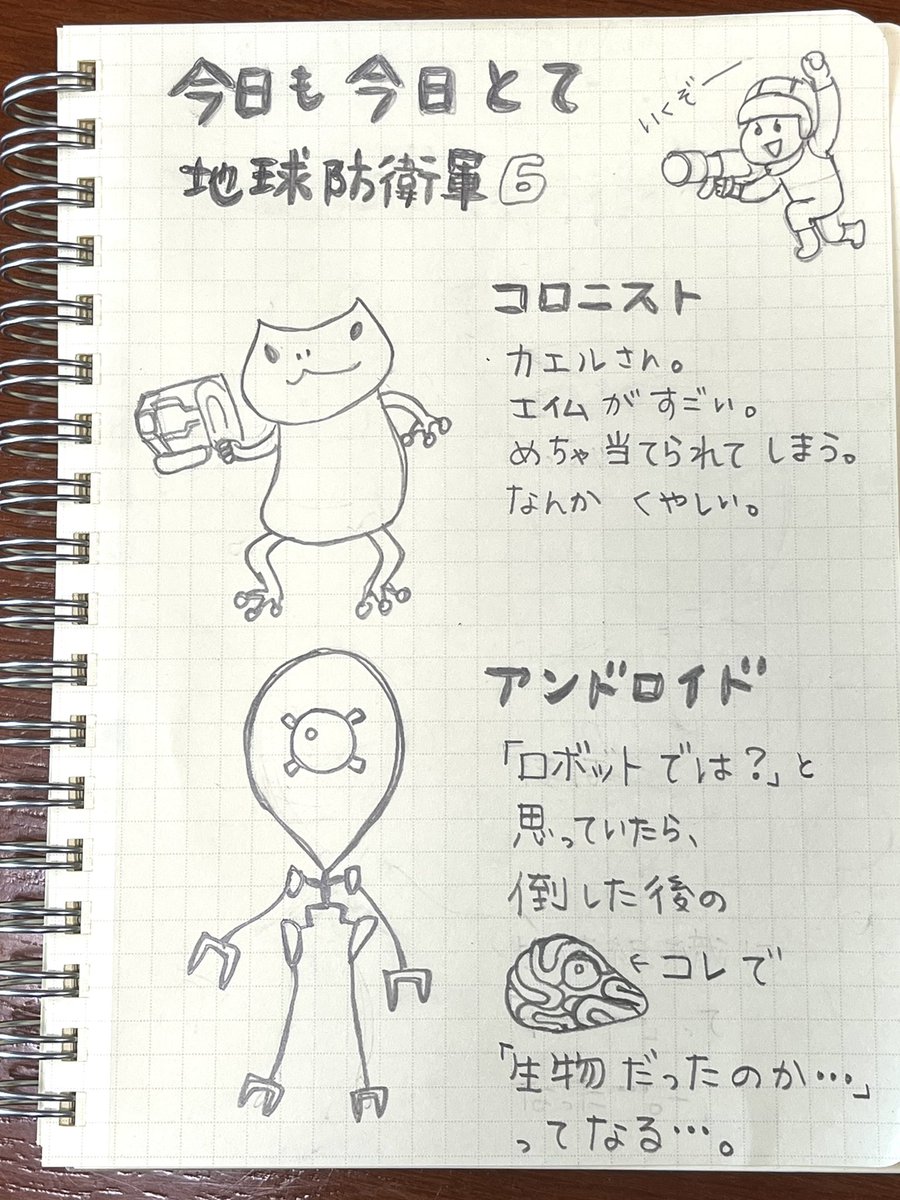 今日も今日とて
地球防衛軍⑥
いくぞー
コロニスト
カエルさん。
エイムがすごい。
めちゃ当てられてしまう。
なんかくやしい。
アンドロイド
「ロボットでは?」と
思っていたら、
倒した後の
←コレで
「生物だったのか…」
ってなる…。